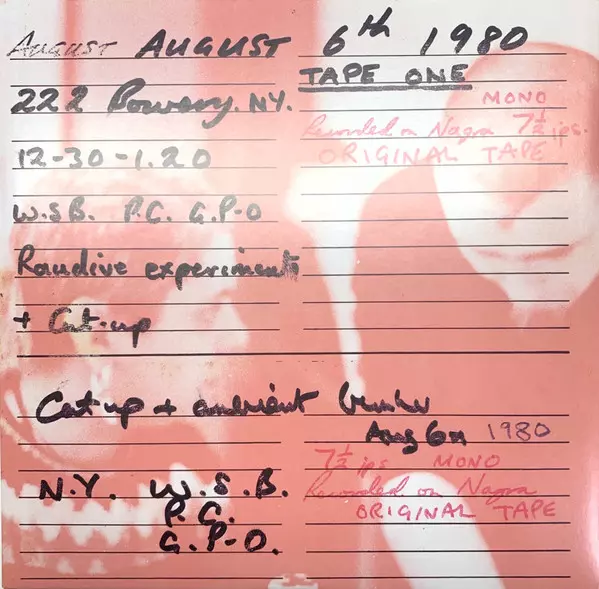 August AUGUST 6th 1980
TAPE ONE
222 Bowery. NY.
MONO
Recorded on Nagra 7½ ips.
12-30-1.20
ORIGINAL TAPE
W.S.B. P.C. G.P-O
Raudive experiments
+ Cut-up
Cut-up + ambient
Aug 6th 1980
7½ ips MONO
N.Y. W.S.B.
Recorded on Nagra
P.C.
ORIGINAL TAPE
G.P-O.